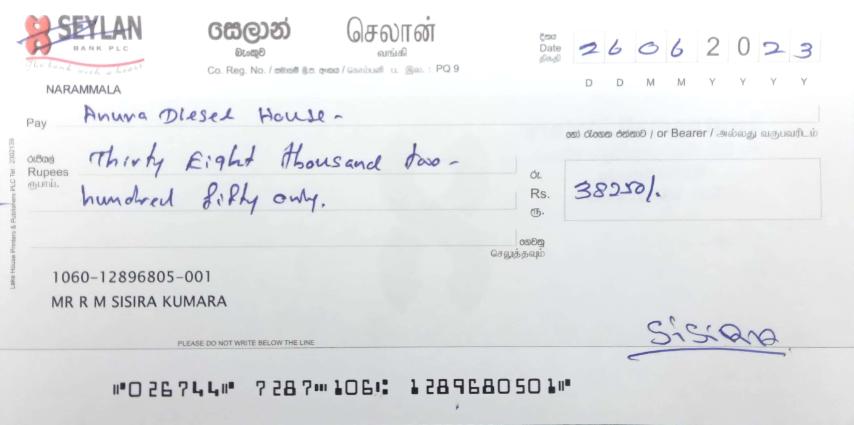 SEYLAN
BANK PLC
The bank with a heart
සෙලාන්
බැංකුව
செலான்
வங்கி
Co. Reg. No. / සමාගම් ලි.ප. අංකය / கொம்பனி ப. இல. : PQ 9
දිනය
Date
திகதி
26 06 2023
D D M M Y Y Y Y
NARAMMALA
Pay Anura Diesel House -
හෝ රැගෙන එන්නාට / or Bearer / அல்லது வருபவரிடம்
රුපියල්
Rupees
ரூபாய்.
Thirty Eight thousand two -
hundred fifty only.
රු.
Rs.
ரூ.
38250/.
ගෙවනු
செலுத்தவும்
Lake House Printers & Publishers PLC Tel:
1060-12896805-001
MR R M SISIRA KUMARA
Sisira
PLEASE DO NOT WRITE BELOW THE LINE
⑈026744⑈ 7287⑉106⑆ 1289680501⑈